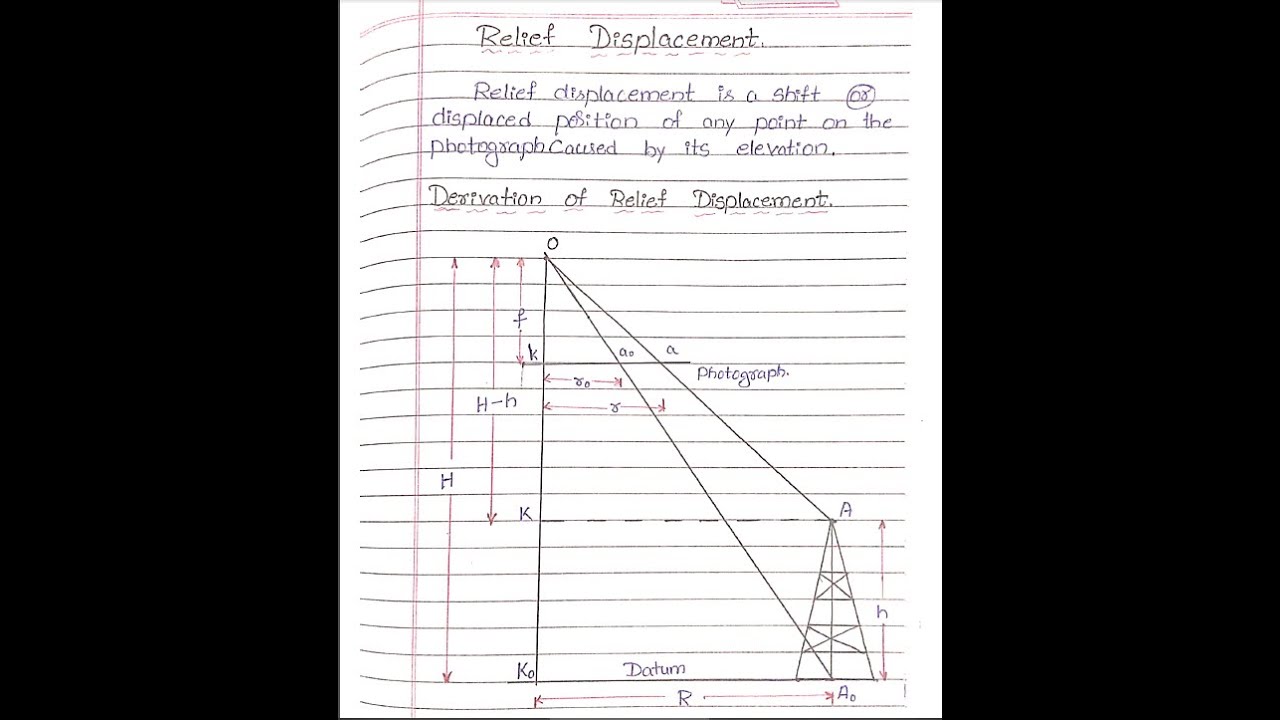 Relief Displacement.
Relief displacement is a shift or
displaced position of any point on the
photograph Caused by its elevation.
Derivation of Relief Displacement.
O
f
k
a₀
a
Photograph.
r₀
H-h
r
H
K
A
h
K₀
Datum
R
A₀